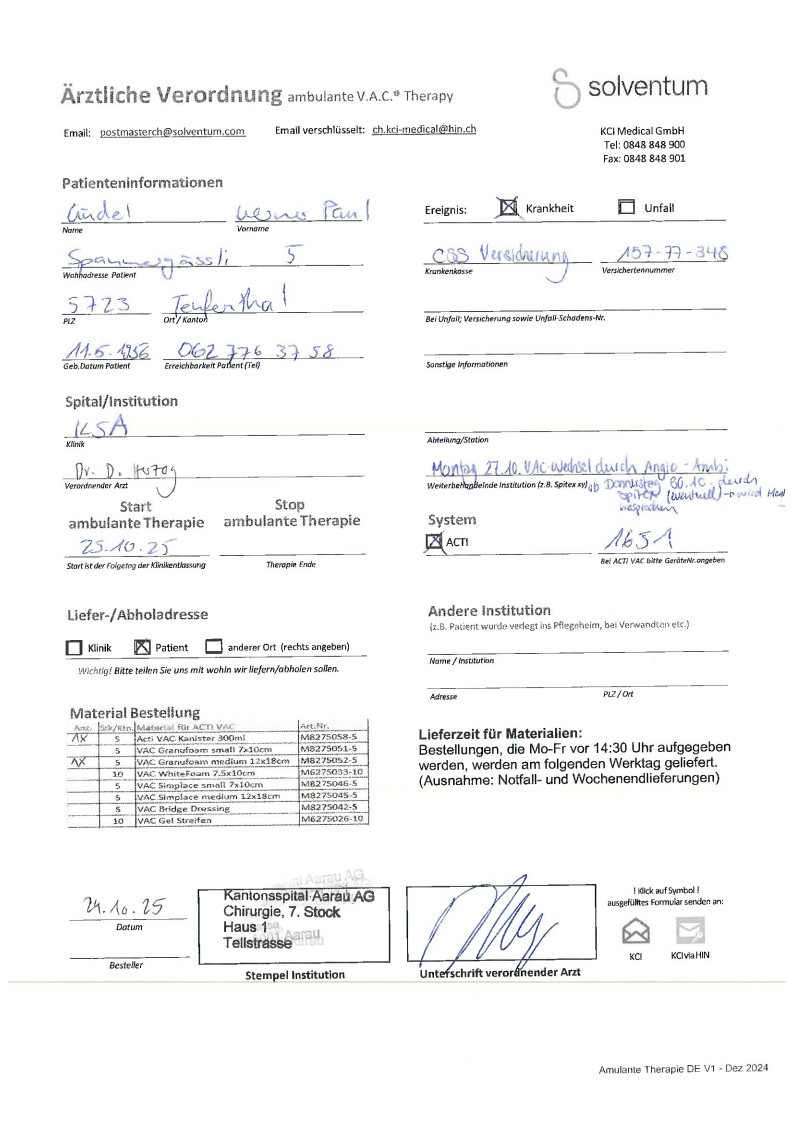 Ärztliche Verordnung ambulante V.A.C.® Therapy
solventum
Email: postmasterch@solventum.com Email verschlüsselt: ch.kci-medical@hin.ch
KCI Medical GmbH
Tel: 0848 848 900
Fax: 0848 848 901
Patienteninformationen
Werner Paul
Name Vorname
Ereignis: Krankheit Unfall
5
Wohnadresse Patient
CSS Versicherung 157-77-348
Krankenkasse Versichertennummer
5723 Teufenthal
PLZ Ort / Kanton
Bei Unfall; Versicherung sowie Unfall-Schadens-Nr.
11.5.1956 062 776 37 58
Geb.Datum Patient Erreichbarkeit Patient (Tel)
Sonstige Informationen
Spital/Institution
KSA
Klinik
Abteilung/Station
Dr. D. Herzog
Verordnender Arzt
Montag 27.10. VAC-Wechsel durch Angio-Ambi
Weiterbehandelnde Institution (z.B. Spitex xy) ab Donnerstag 30.10. durch
Spitex (eventuell) → wird
besprochen
Start Stop
ambulante Therapie ambulante Therapie
25.10.25
Start ist der Folgetag der Klinikentlassung Therapie Ende
System
ACTI 1651
Bei ACTI VAC bitte GeräteNr.angeben
Liefer-/Abholadresse
Klinik Patient anderer Ort (rechts angeben)
Wichtig! Bitte teilen Sie uns mit wohin wir liefern/abholen sollen.
Andere Institution
(z.B. Patient wurde verlegt ins Pflegeheim, bei Verwandten etc.)
Name / Institution
Adresse PLZ / Ort
Material Bestellung
Anz. Stk/Ktn. Material für ACTI VAC Art.Nr.
1x 5 Acti VAC Kanister 300ml M8275058-5
5 VAC Granufoam small 7x10cm M8275051-5
1x 5 VAC Granufoam medium 12x18cm M8275052-5
10 VAC WhiteFoam 7.5x10cm M6275033-10
5 VAC Simplace small 7x10cm M8275046-5
5 VAC Simplace medium 12x18cm M8275045-5
5 VAC Bridge Dressing M8275042-5
10 VAC Gel Streifen M6275026-10
Lieferzeit für Materialien:
Bestellungen, die Mo-Fr vor 14:30 Uhr aufgegeben
werden, werden am folgenden Werktag geliefert.
(Ausnahme: Notfall- und Wochenendlieferungen)
24.10.25
Datum
Besteller
Kantonsspital Aarau AG
Chirurgie, 7. Stock
Haus 1
Tellstrasse
Stempel Institution
Unterschrift verordnender Arzt
! Klick auf Symbol !
ausgefülltes Formular senden an:
KCI KCI via HIN
Amulante Therapie DE V1 - Dez 2024